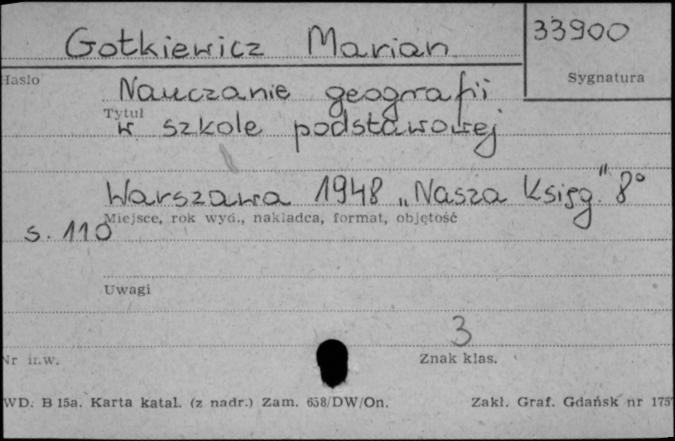 Gotkiewicz Marian
33900
Hasło
Sygnatura
Nauczanie geografii
Tytuł
w szkole podstawowej
Warszawa 1948 „Nasza Księg.” 8°
Miejsce, rok wyd., nakładca, format, objętość
s. 110
Uwagi
3
Nr inw.
Znak klas.
WD. B 15a. Karta katal. (z nadr.) Zam. 658/DW/On.
Zakł. Graf. Gdańsk nr 175